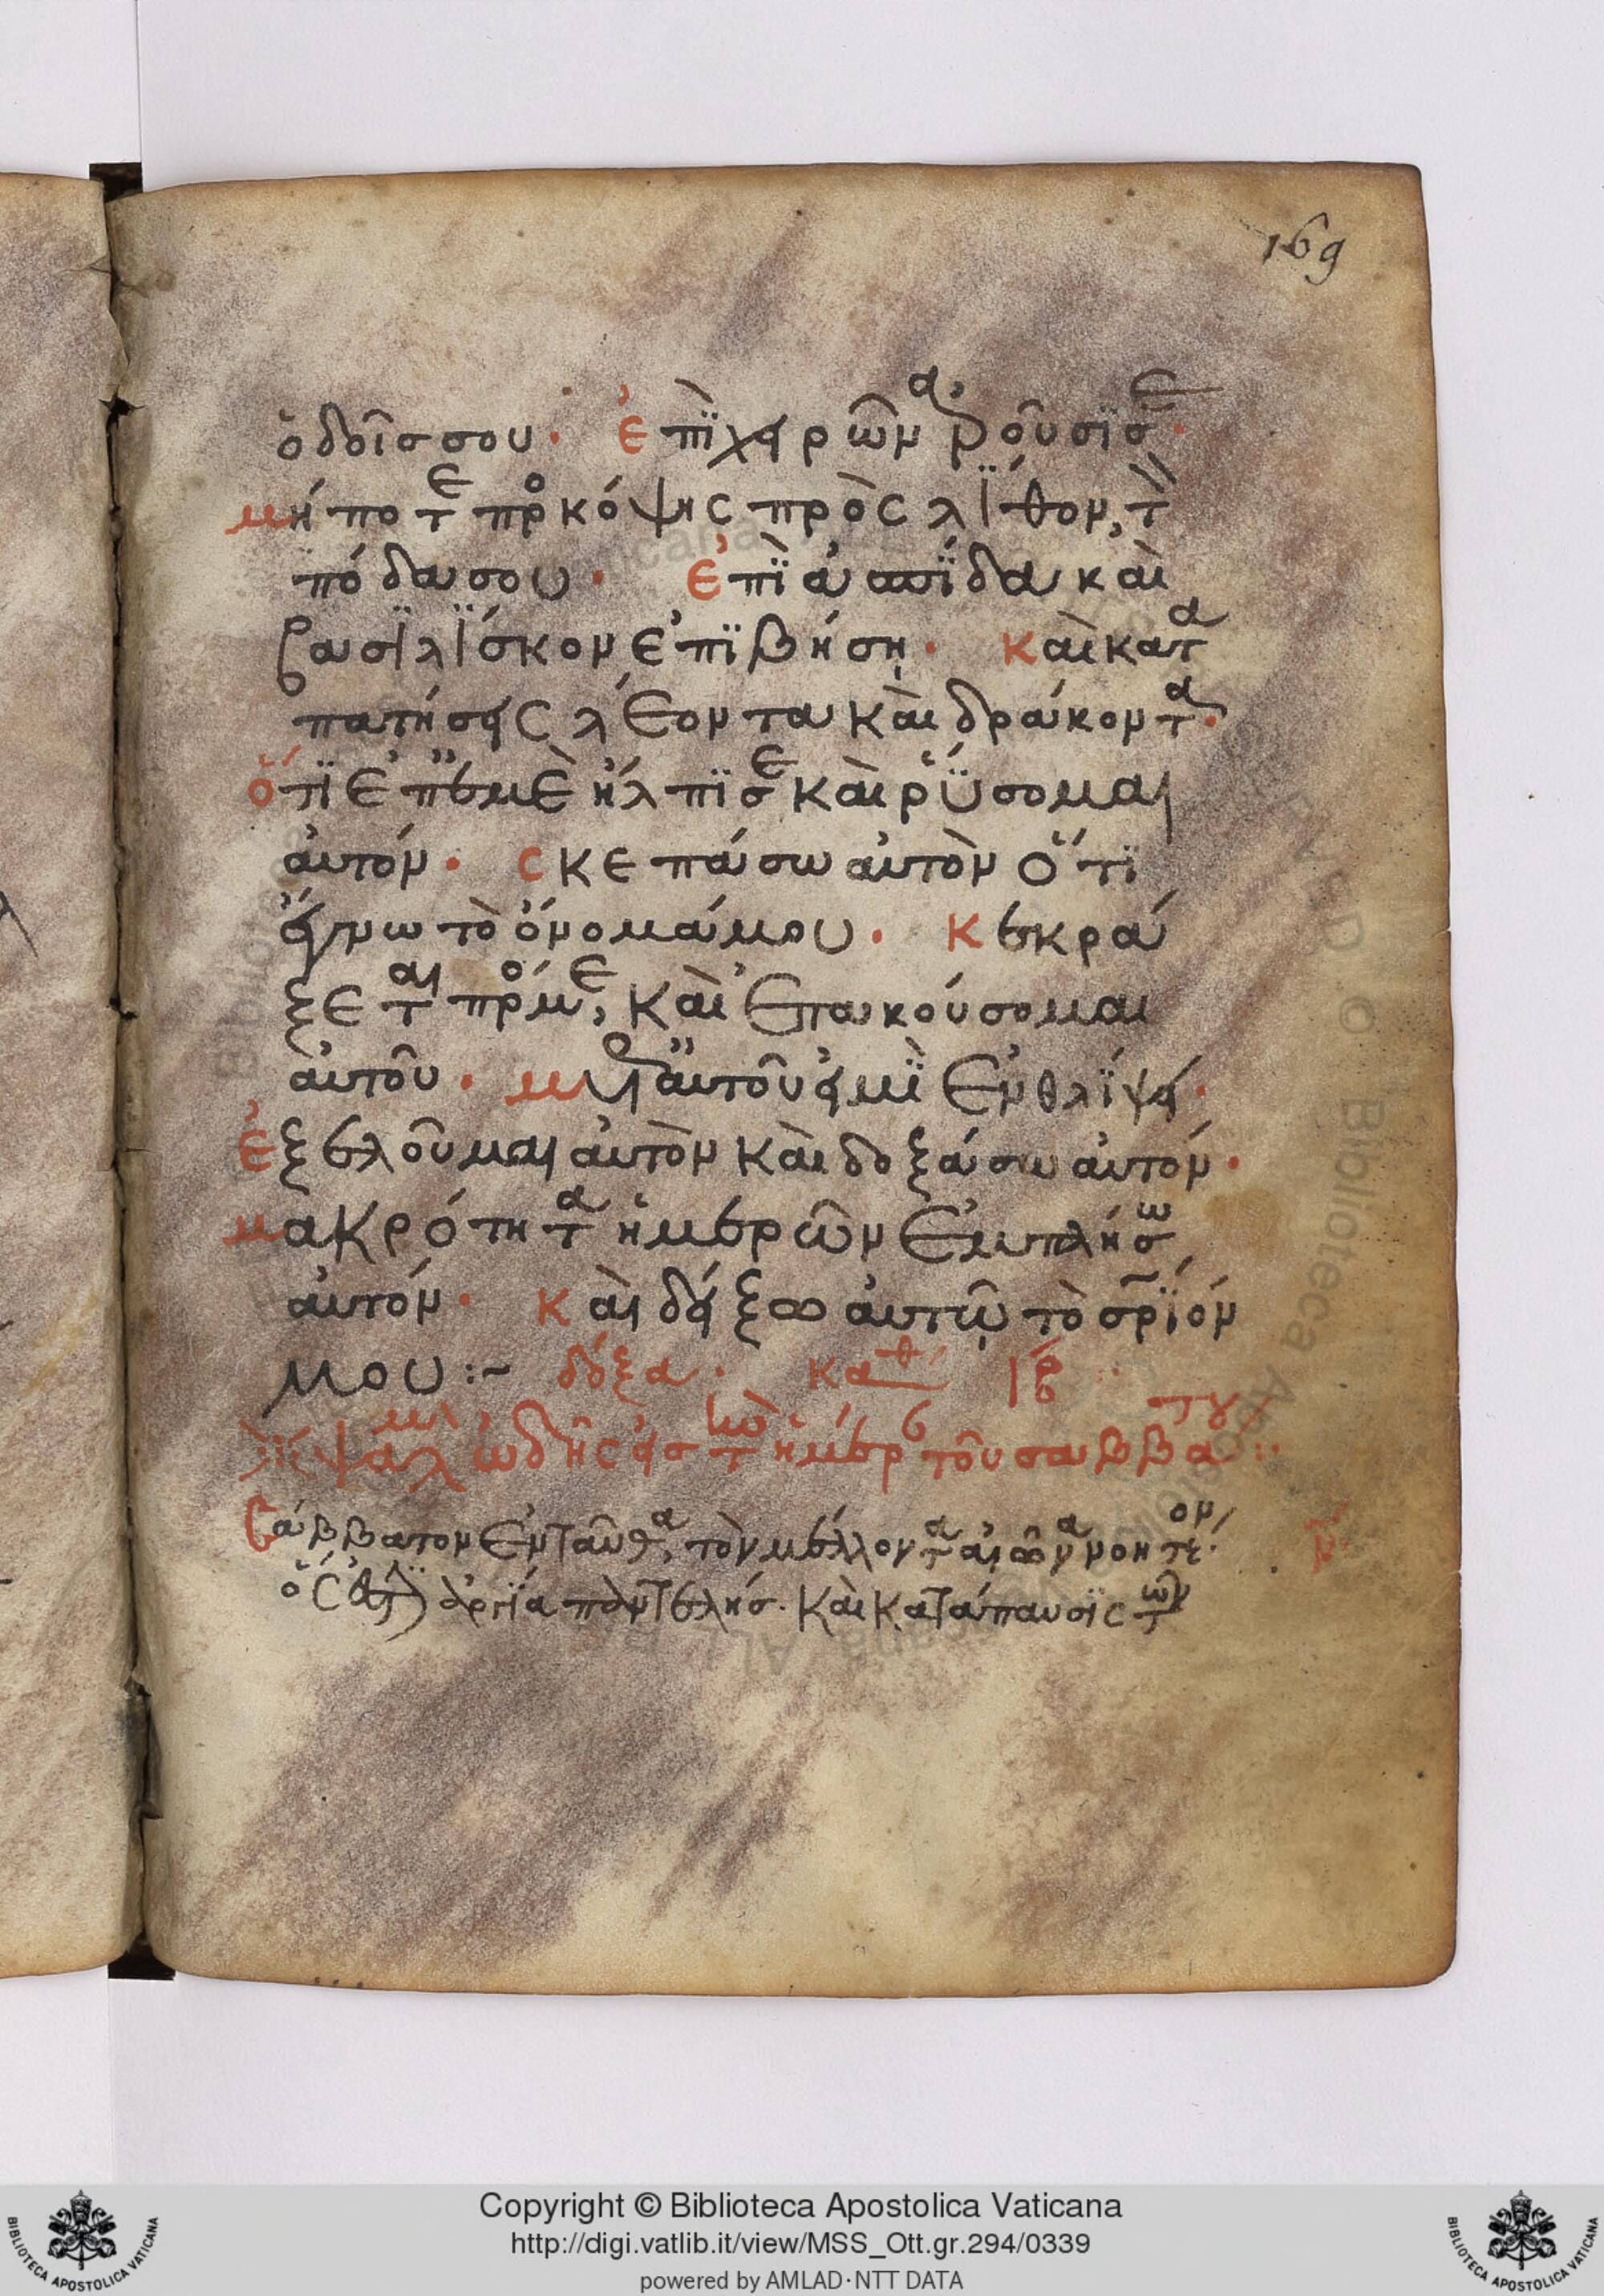 169
ὁδοῖσ σου· ἐπὶ χειρῶν ἀροῦσί σε·
μήποτε προσκόψῃς πρὸς λίθον, τὸν
πόδα σου· ἐπὶ ἀσπίδα καὶ
βασιλίσκον ἐπιβήσῃ· καὶ κατα
πατήσεις λέοντα καὶ δράκοντα·
ὅτι ἐπ' ἐμὲ ἤλπισε καὶ ῥύσομαι
αὐτόν· σκεπάσω αὐτὸν ὅτι
ἔγνω τὸ ὄνομά μου· κεκρά
ξεται πρός με, καὶ ἐπακούσομαι
αὐτοῦ· μετ' αὐτοῦ εἰμὶ ἐν θλίψει·
ἐξελοῦμαι αὐτὸν καὶ δοξάσω αὐτόν·
μακρότητα ἡμερῶν ἐμπλήσω
αὐτόν· καὶ δείξω αὐτῷ τὸ σριόν
μου :~ δόξα· καθ
ψαλμ ὠδῆς εἰσ τὴν ἡμέρ τοῦ σαββά
Σάββατον ἐνταῦθα, τὸν μέλλοντα αἰῶνα
Copyright © Biblioteca Apostolica Vaticana
http://digi.vatlib.it/view/MSS_Ott.gr.294/0339
powered by AMLAD·NTT DATA
BIBLIOTECA APOSTOLICA VATICANA
BIBLIOTECA APOSTOLICA VATICANA